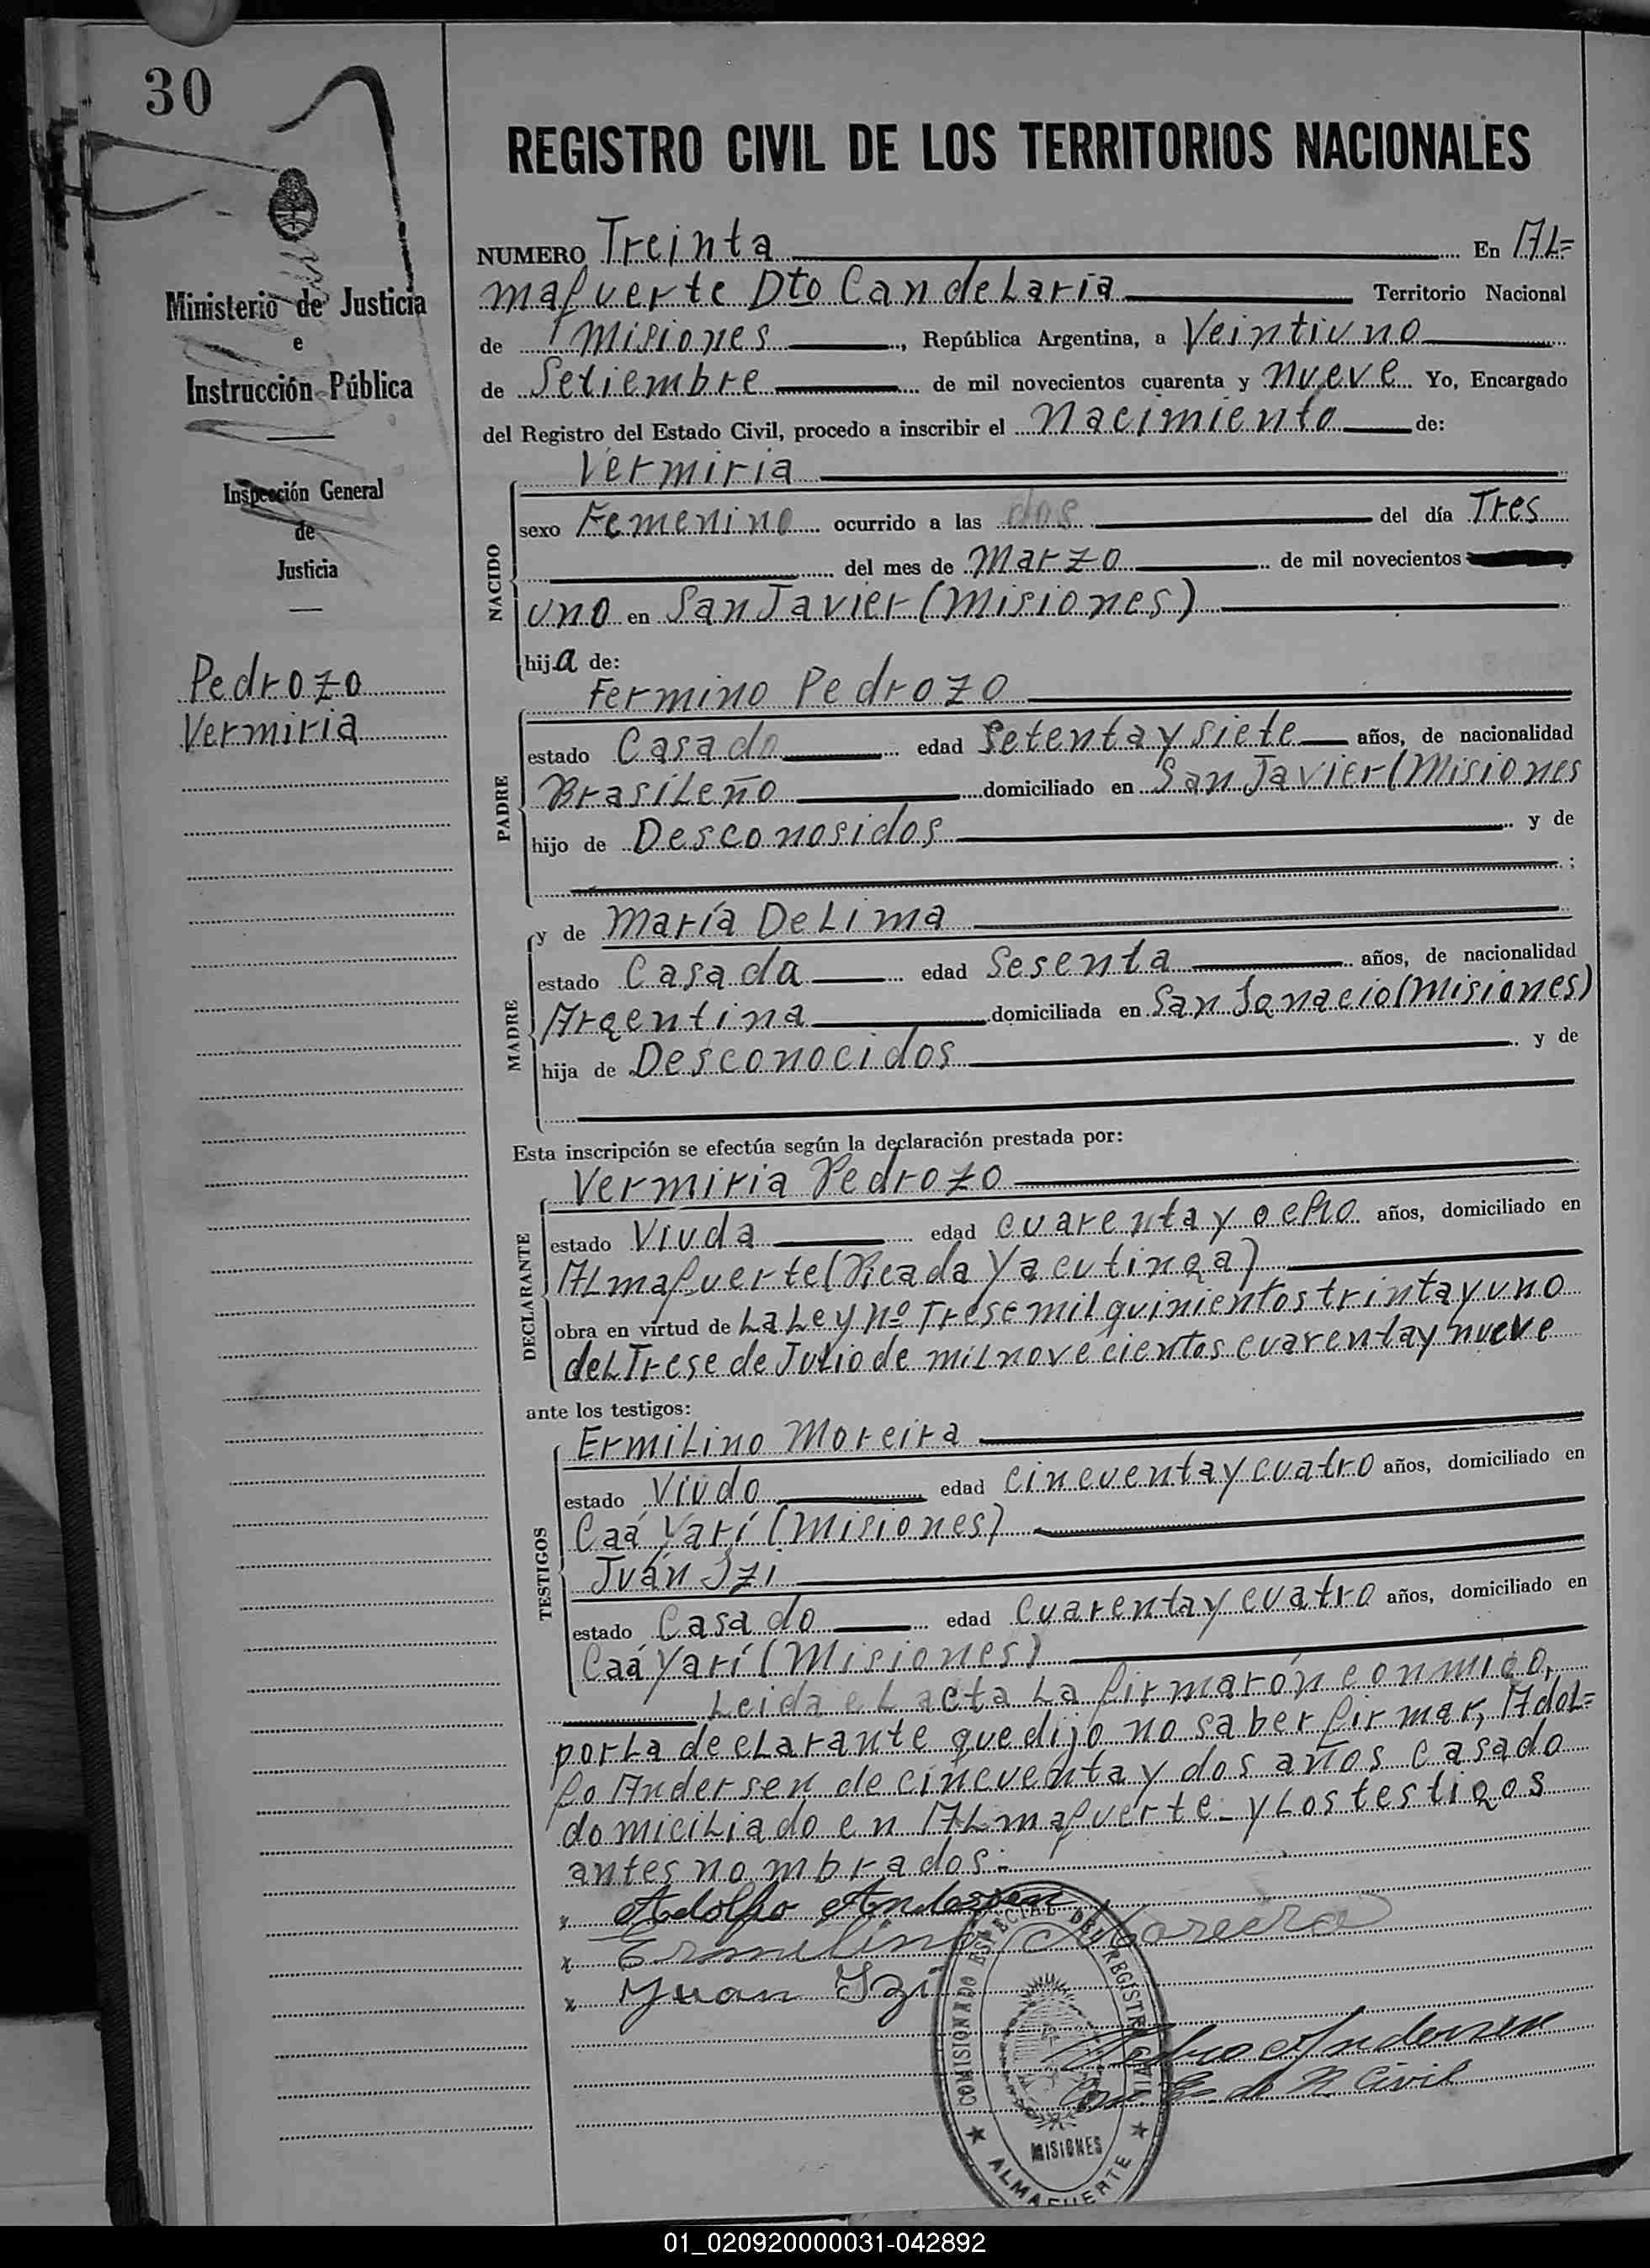 30
REGISTRO CIVIL DE LOS TERRITORIOS NACIONALES
Ministerio de Justicia
e
Instrucción Pública
Inspección General
de
Justicia
Pedrozo
Vermiria
NUMERO Treinta En Al=
mafuerte Dto Candelaria Territorio Nacional
de Misiones, República Argentina, a Veintiuno
de Setiembre de mil novecientos cuarenta y nueve Yo, Encargado
del Registro del Estado Civil, procedo a inscribir el Nacimiento de:
NACIDO
Vermiria
sexo Femenino ocurrido a las dos del día Tres
del mes de Marzo de mil novecientos
uno en San Javier (Misiones)
hija de:
PADRE
Fermino Pedrozo
estado Casado edad Setenta y siete años, de nacionalidad
Brasileño domiciliado en San Javier (Misiones
hijo de Desconosidos y de
;
MADRE
y de María De Lima
estado Casada edad Sesenta años, de nacionalidad
Argentina domiciliada en San Ignacio (Misiones)
hija de Desconocidos y de
Esta inscripción se efectúa según la declaración prestada por:
DECLARANTE
Vermiria Pedrozo
estado Viuda edad cuarenta y ocho años, domiciliado en
Almafuerte (Picada Yacutinga)
obra en virtud de La Ley Nº Trese mil quinientos trinta y uno
del Trese de Julio de mil novecientos cuarenta y nueve
ante los testigos:
TESTIGOS
Ermilino Moreira
estado Viudo edad cincuenta y cuatro años, domiciliado en
Caá Yarí (Misiones)
Juán Izi
estado Casado edad Cuarenta y cuatro años, domiciliado en
Caá Yarí (Misiones)
Leida el acta la firmarón conmigo,
por la declarante que dijo no saber firmar, Adol=
fo Andersen de cincuenta y dos años casado
domiciliado en Almafuerte - y los testigos
antes nombrados.-
x Adolfo Andersen
x Ermilino Moreira
x Juan Izi
Pedro Andersen
de R. Civil
COMISIONADO ESPECIAL DEL REGISTRO CIVIL
MISIONES
★ ALMAFUERTE ★
01_020920000031-042892